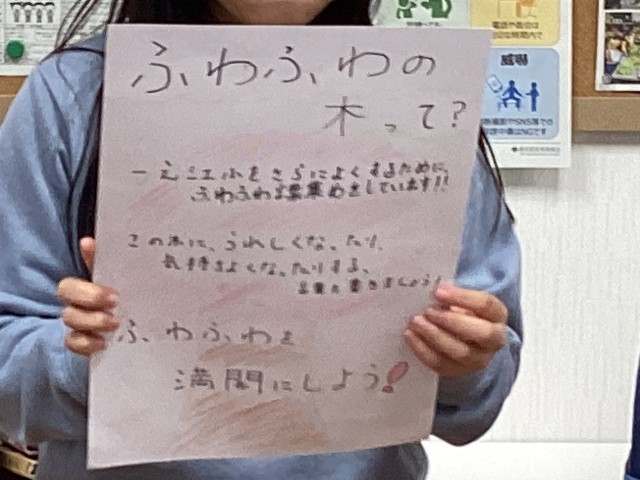 ふわふわの
木って?
一之江小をさらによくするために、
ふわふわ言葉集めをしています!!
この木に、うれしくなったり、
気持ちよくなったりする、
言葉を書きましょう!
ふわふわを
満開にしよう!
威嚇